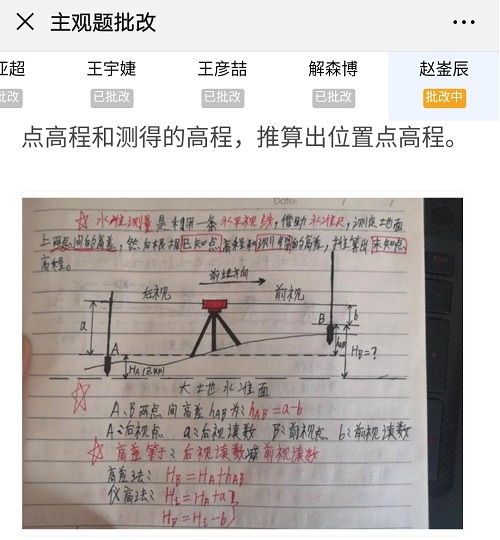 主观题批改
亚超 王宇婕 王彦喆 解森博 赵崟辰
批改 已批改 已批改 已批改 批改中
点高程和测得的高程，推算出位置点高程。
Date:
☆ 水准测量是利用一条水平视线，借助水准尺，测定地面
上两点间的高差，然后根据已知点高程和测得的高差，推算出未知点
高程。
前进方向
后视 前视
a b
B
A hAB
HA(已知) HB=?
大地水准面
A、B两点间高差hAB为：hAB=a-b
A：后视点 a：后视读数 B：前视点 b：前视读数
☆ 高差等于：后视读数减前视读数
高差法：HB=HA+hAB
仪高法：Hi=HA+a
HB=Hi-b